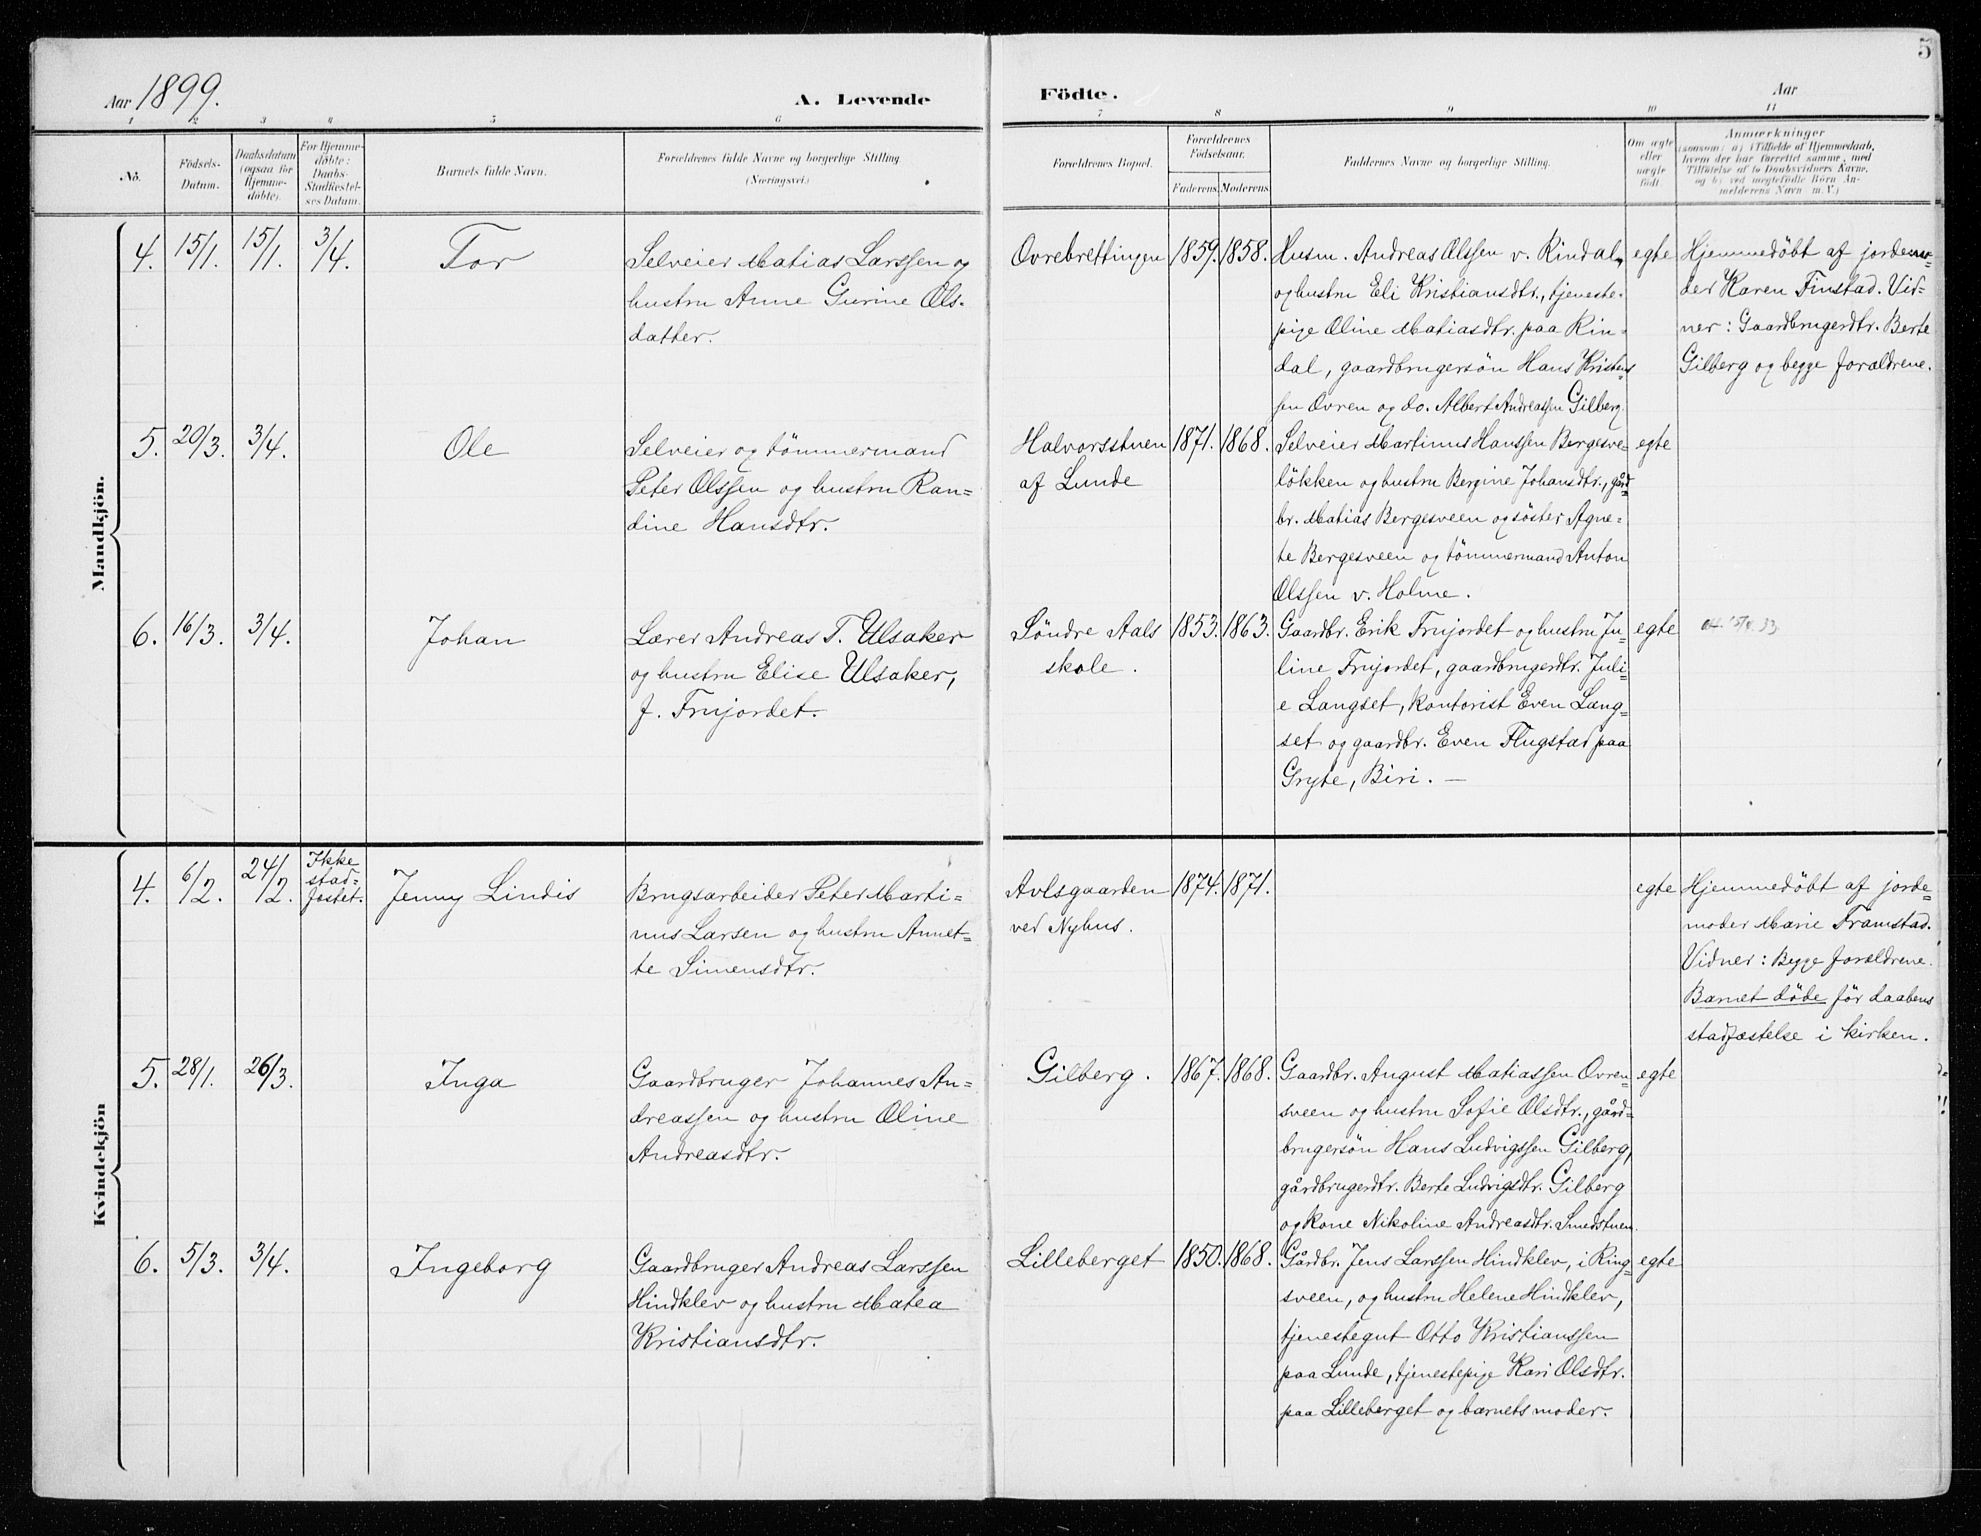 5
Aar 1899.
A. Levende
Födte.
Aar
1 2 3 4 5 6 7 8 9 10 11
No.
Födsels-
Datum.
Daabsdatum
(ogsaa for
Hjemme-
döbte).
For Hjemme-
døbte:
Daabs-
Stadfæstel-
ses Datum.
Barnets fulde Navn.
Forældrenes fulde Navne og borgerlige Stilling
(Næringsvei.)
Forældrenes Bopæl.
Forældrenes
Födselsaar.
Faderens. Moderens.
Faddernes Navne og borgerlige Stilling.
Om ægte
eller
uægte
født.
Anmærkninger
(saasom: a) i Tilfælde af Hjemmedaab,
hvem der har forrettet samme, med
Tilföielse af to Daabsvidners Navne,
og b) ved uægtefödte Börn An-
melderens Navn m. V.)
Mandkjön.
4. 15/1. 15/1. 3/4. Tor
Selveier Matias Larssen og
hustru Anne Gurine Ols-
datter.
Ovrebrettingen 1859. 1858.
Husm. Andreas Olssen v. Rindal,
og hustru Eli Kristiansdtr., tjeneste-
pige Oline Matiasdtr. paa Rin-
dal, gaardbrugersön Hans Kristens
sen Ovren og do. Albert Andreassen Gilberg.
egte
Hjemmedöbt af jordemo-
der Karen Finstad. Vid-
ner: Gaardbrugerdtr. Berte
Gilberg og begge forældrene.
5. 20/3. 3/4. Ole
Selveier og tömmermand
Peter Olssen og hustru Ran-
dine Hansdtr.
Halvorsstuen
af Lunde
1871. 1868.
Selveier Martinus Hanssen Bergesve-
lökken og hustru Bergine Johansdtr., gård-
br. Matias Bergesveen og söster Agne-
te Bergesveen og tömmermand Anton
Olssen v. Holme.
egte
6. 16/3. 3/4. Johan
Lærer Andreas T. Ulsaker
og hustru Elise Ulsaker,
f. Frujordet.
Söndre Aals
skole.
1853. 1863.
Gaardbr. Erik Frujordet og hustru Ju-
line Frujordet, gaardbrugerdtr. Juli-
e Langset, kontorist Even Lang-
set og gaardbr. Even Flugstad paa
Gryte, Biri. —
egte
Kvindekjön
4. 6/2. 24/2. Ikke
stad-
festet.
Jenny Lindis
Brugsarbeider Peter Marti-
nus Larsen og hustru Annet-
te Simensdtr.
Avlsgaarden
ved Nyhus.
1874. 1871.
egte
Hjemmedöbt af jorde-
moder Marie Framstad.
Vidner: Begge forældrene.
Barnet döde för daabens
stadfæstelse i kirken.
5. 28/1. 26/3. Inga
Gaardbruger Johannes An-
dreassen og hustru Oline
Andreasdtr.
Gilberg. 1867. 1868.
Gaardbr. August Matiassen Ovren-
sveen og hustru Sofie Olsdtr., gård-
brugersön Hans Ludvigssen Gilberg,
gårdbrugerdtr. Berte Ludvigsdtr. Gilberg
og kone Nikoline Andreasdtr. Smedstuen.
egte
6. 5/3. 3/4. Ingeborg
Gaardbruger Andreas Larssen
Hindklev og hustru Matea
Kristiansdtr.
Lilleberget 1850. 1868.
Gårdbr. Jens Larssen Hindklev, i Ring-
sveen, og hustru Helene Hindklev,
tjenestegut Otto Kristianssen
paa Lunde, tjenestepige Kari Olsdtr.
paa Lilleberget og barnets moder.
egte